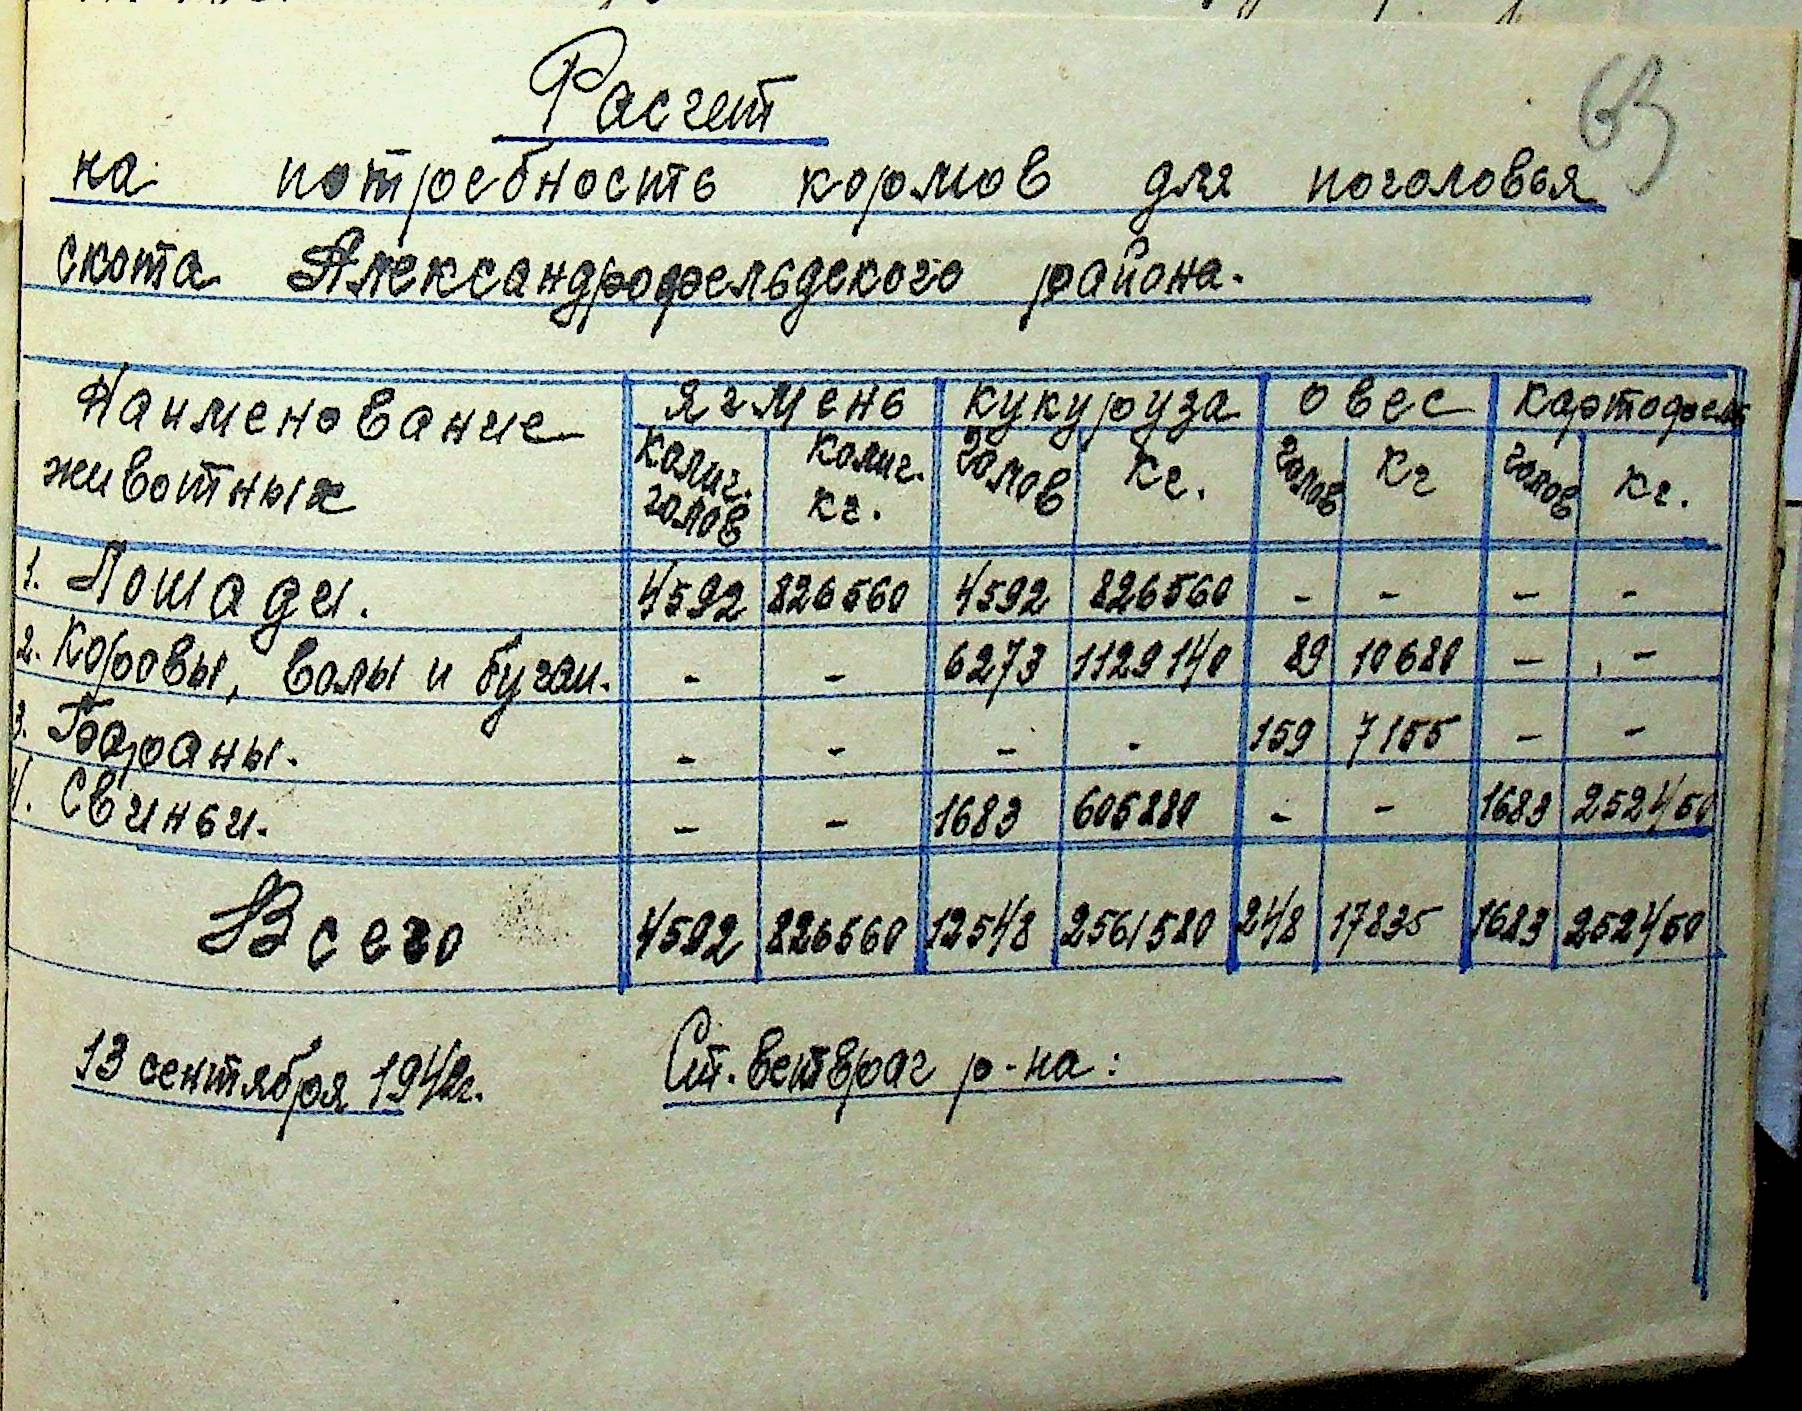 63
Расчет
на потребность кормов для поголовья
скота Александрофельдского района.
Наименование животных | Ячмень | Кукуруза | Овес | Картофель
Колич. голов | Колич. кг. | голов | кг. | голов | кг | голов | кг.
1. Лошади. | 4592 | 826560 | 4592 | 826560 | - | - | - | -
2. Коровы, волы и бугаи. | - | - | 6273 | 1129140 | 89 | 10680 | - | -
3. Бараны. | - | - | - | - | 159 | 7155 | - | -
4. Свиньи. | - | - | 1683 | 605880 | - | - | 1683 | 252450
Всего | 4592 | 826560 | 12548 | 2561580 | 248 | 17835 | 1683 | 252450
13 сентября 1942г. Ст. ветврач р-на: